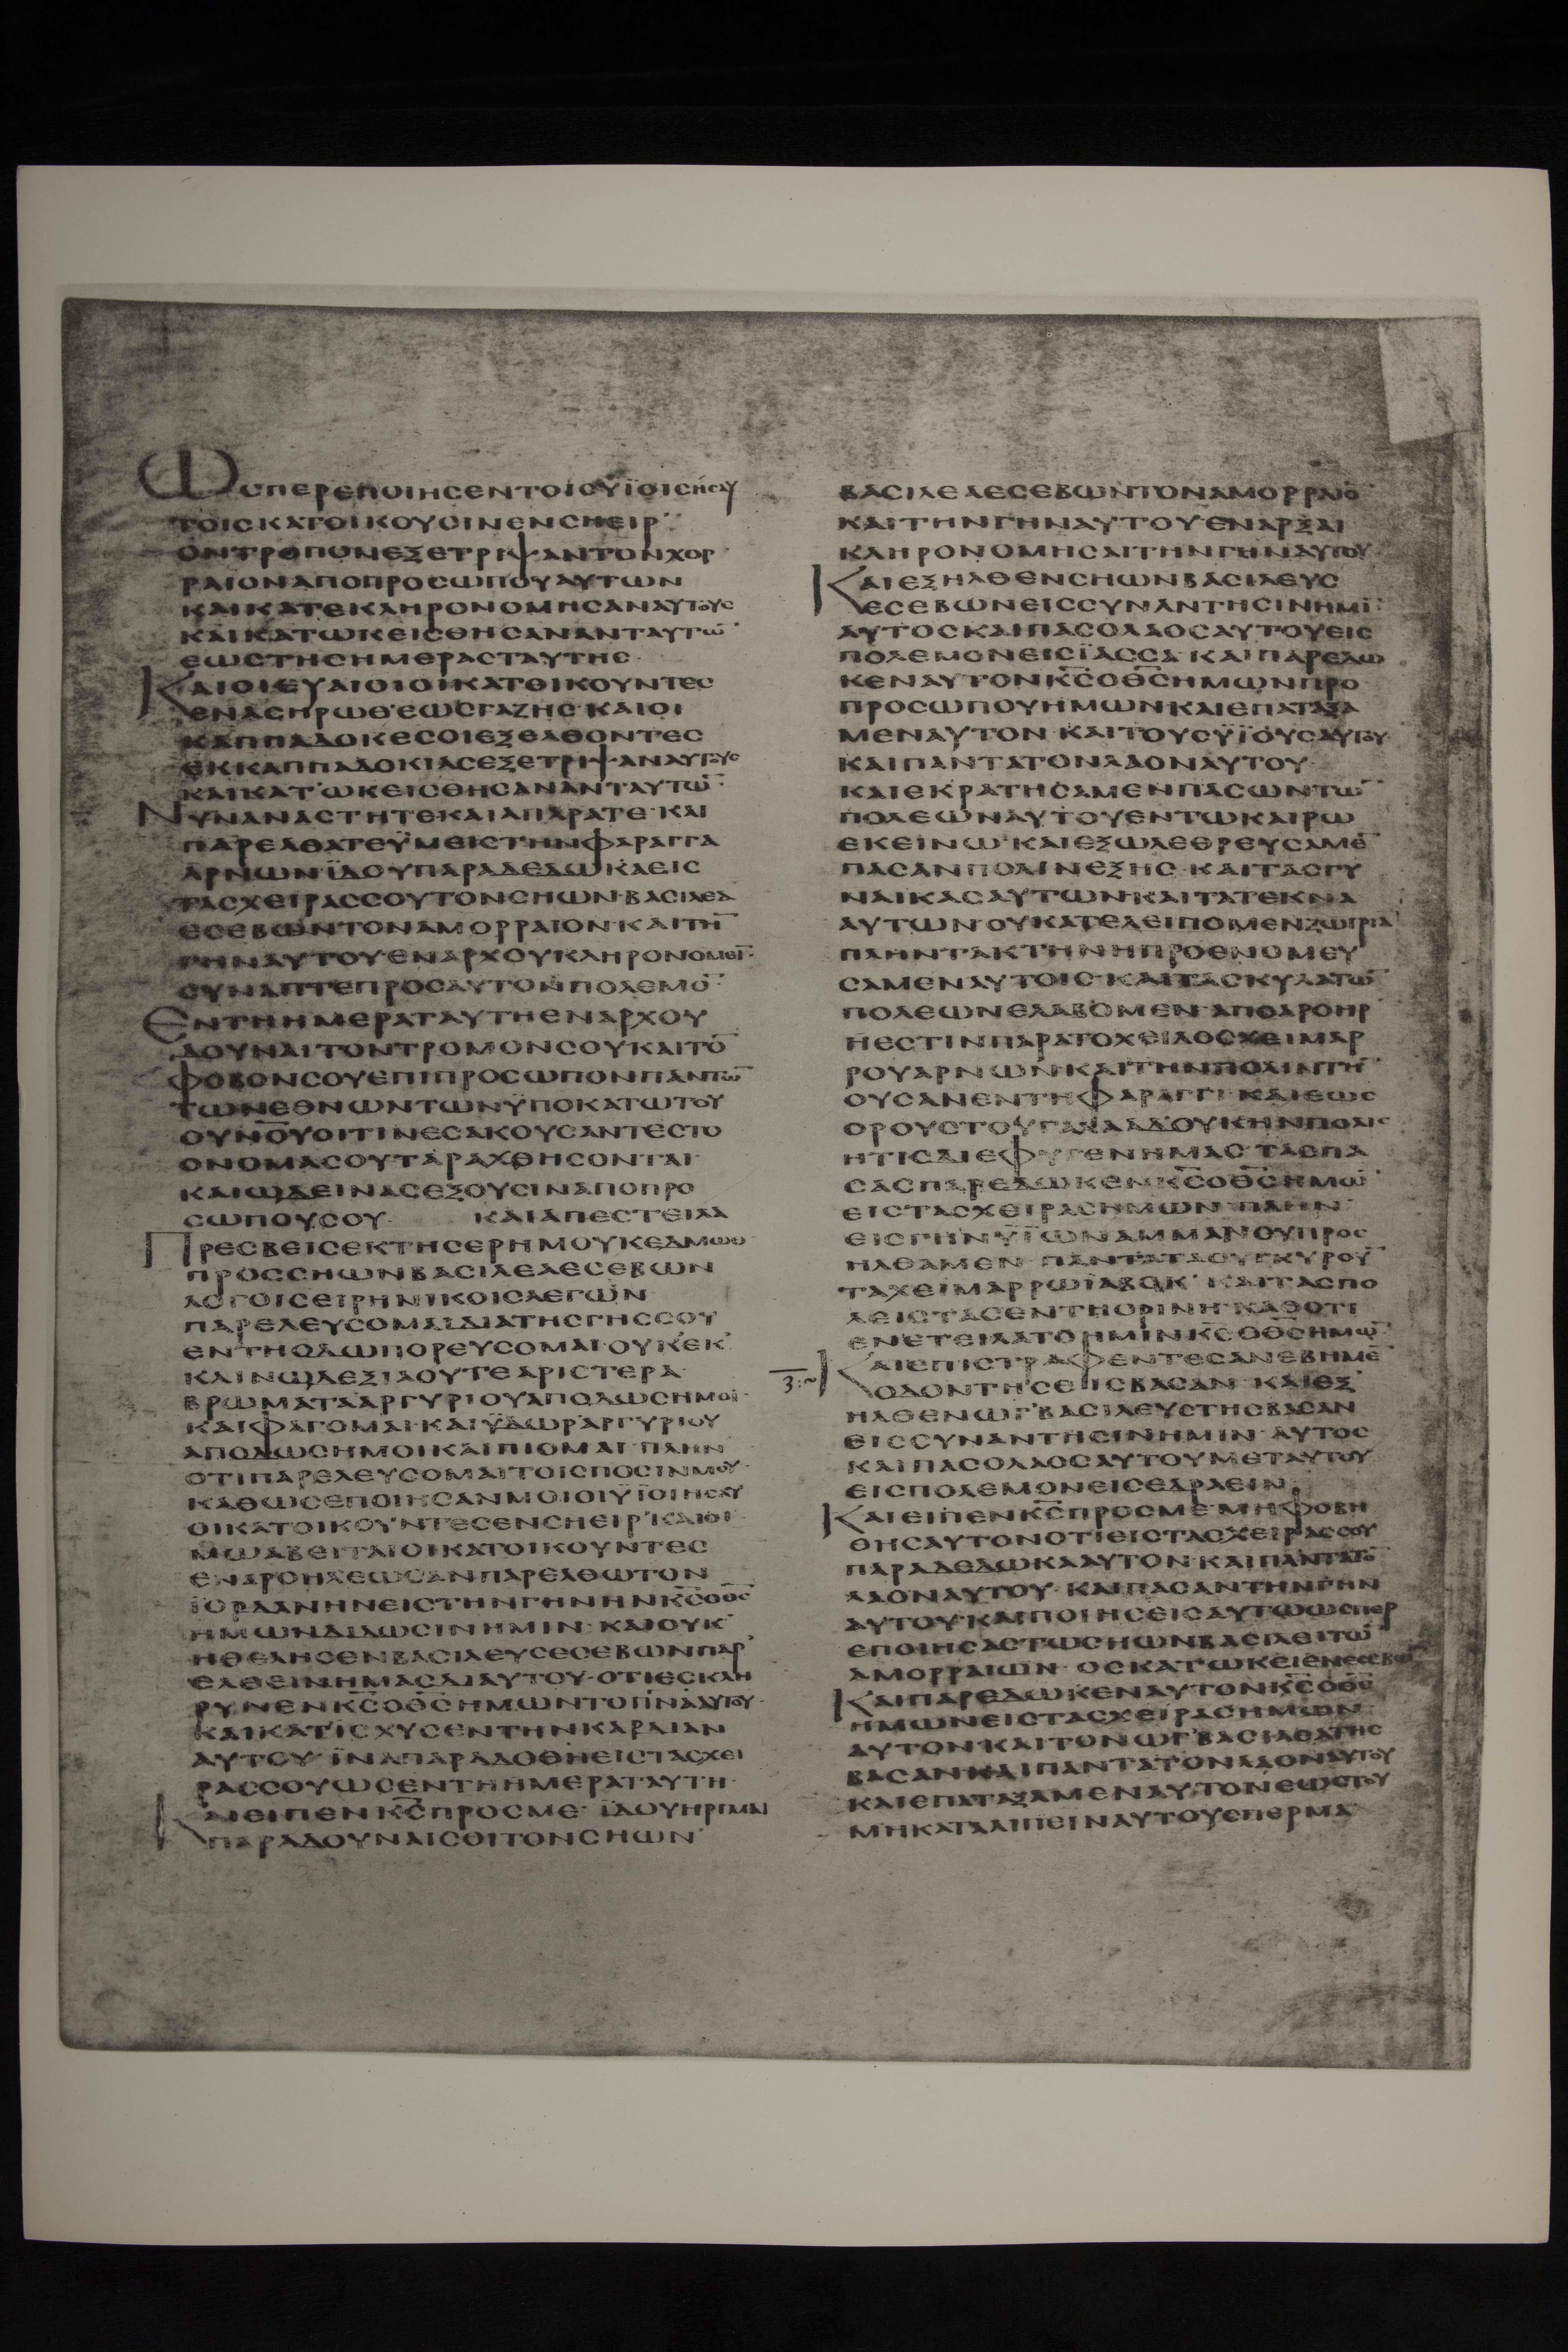 ΩσπερεποιησεντοισΥΪΟΙCΗCΑΥ
ΤΟΙCΚΑΤΟΙΚΟΥCΙΝΕΝCΗΕΙΡ·
ΟΝΤΡΟΠΟΝΕΞΕΤΡΙΨΑΝΤΟΝΧΟΡ
ΡΑΙΟΝΑΠΟΠΡΟCΩΠΟΥΑΥΤΩΝ
ΚΑΙΚΑΤΕΚΛΗΡΟΝΟΜΗCΑΝΑΥΤΟΥC
ΚΑΙΚΑΤΩΚΕΙCΘΗCΑΝΑΝΤΑΥΤΩ̅
ΕΩCΤΗCΗΜΕΡΑCΤΑΥΤΗC·
ΚΑΙΟΙΕΥΑΙΟΙΟΙΚΑΤΟΙΚΟΥΝΤΕC
ΕΝΑCΗΡΩΘΕΩCΓΑΖΗC·ΚΑΙΟΙ
ΚΑΠΠΑΔΟΚΕCΟΙΕΞΕΛΘΟΝΤΕC
ΕΚΚΑΠΠΑΔΟΚΙΑCΕΞΕΤΡΙΨΑΝΑΥΤΟΥC
ΚΑΙΚΑΤΩΚΕΙCΘΗCΑΝΑΝΤΑΥΤΩ̅·
ΝΥΝΑΝΑCΤΗΤΕΚΑΙΑΠΑΡΑΤΕ·ΚΑΙ
ΠΑΡΕΛΘΑΤΕΫΜΕΙCΤΗΝΦΑΡΑΓΓΑ
ΑΡΝΩΝ·ΪΔΟΥΠΑΡΑΔΕΔΩΚΑΕΙC
ΤΑCΧΕΙΡΑCCΟΥΤΟΝCΗΩΝ·ΒΑCΙΛΕΑ
ΕCΕΒΩΝΤΟΝΑΜΟΡΡΑΙΟΝ·ΚΑΙΤΗ̅
ΓΗΝΑΥΤΟΥΕΝΑΡΧΟΥΚΛΗΡΟΝΟΜΕΙ̅·
CΥΝΑΠΤΕΠΡΟCΑΥΤΟΝΠΟΛΕΜΟ̅·
ΕΝΤΗΗΜΕΡΑΤΑΥΤΗΕΝΑΡΧΟΥ
ΔΟΥΝΑΙΤΟΝΤΡΟΜΟΝCΟΥΚΑΙΤΟ̅
ΦΟΒΟΝCΟΥΕΠΙΠΡΟCΩΠΟΝΠΑΝΤΩ̅
ΤΩΝΕΘΝΩΝΤΩΝΫΠΟΚΑΤΩΤΟΥ
ΟΥΝΟ̅Υ̅ΟΙΤΙΝΕCΑΚΟΥCΑΝΤΕCΤΟ
ΟΝΟΜΑCΟΥΤΑΡΑΧΘΗCΟΝΤΑΙ·
ΚΑΙΩΔΕΙΝΑCΕΞΟΥCΙΝΑΠΟΠΡΟ
CΩΠΟΥCΟΥ· ΚΑΙΑΠΕCΤΕΙΛΑ
ΠΡΕCΒΕΙCΕΚΤΗCΕΡΗΜΟΥΚΕΔΑΜΩΘ
ΠΡΟCCΗΩΝΒΑCΙΛΕΑΕCΕΒΩΝ
ΛΟΓΟΙCΕΙΡΗΝΙΚΟΙCΛΕΓΩΝ
ΠΑΡΕΛΕΥCΟΜΑΙΔΙΑΤΗCΓΗCCΟΥ
ΕΝΤΗΟΔΩΠΟΡΕΥCΟΜΑΙ·ΟΥΚΕΚ
ΚΛΙΝΩΔΕΞΙΑΟΥΤΕΑΡΙCΤΕΡΑ·
ΒΡΩΜΑΤΑΑΡΓΥΡΙΟΥΑΠΟΔΩCΗΜΟΙ·
ΚΑΙΦΑΓΟΜΑΙ·ΚΑΙΫΔΩΡΑΡΓΥΡΙΟΥ
ΑΠΟΔΩCΗΜΟΙΚΑΙΠΙΟΜΑΙ·ΠΛΗΝ
ΟΤΙΠΑΡΕΛΕΥCΟΜΑΙΤΟΙCΠΟCΙΝΜΟΥ·
ΚΑΘΩCΕΠΟΙΗCΑΝΜΟΙΟΙΫΙΟΙΗCΑΥ
ΟΙΚΑΤΟΙΚΟΥΝΤΕCΕΝCΗΕΙΡ·ΚΑΙΟΙ
ΜΩΑΒΕΙΤΑΙΟΙΚΑΤΟΙΚΟΥΝΤΕC
ΕΝΑΡΟΗΛΕΩCΑΝΠΑΡΕΛΘΩΤΟΝ
ΪΟΡΔΑΝΗΝΕΙCΤΗΝΓΗΝΗΝΚ̅C̅ΟΘ̅C̅
ΗΜΩΝΔΙΔΩCΙΝΗΜΙΝ·ΚΑΙΟΥΚ
ΗΘΕΛΗCΕΝΒΑCΙΛΕΥCΕCΕΒΩΝΠΑΡ
ΕΛΘΕΙΝΗΜΑCΔΙΑΥΤΟΥ·ΟΤΙΕCΚΛΗ
ΡΥΝΕΝΚ̅C̅ΟΘ̅C̅ΗΜΩΝΤΟΠ̅Ν̅ΑΑΥΤΟΥ·
ΚΑΙΚΑΤΙCΧΥCΕΝΤΗΝΚΑΡΔΙΑΝ
ΑΥΤΟΥ·ΪΝΑΠΑΡΑΔΟΘΗΕΙCΤΑCΧΕΙ
ΡΑCCΟΥΩCΕΝΤΗΗΜΕΡΑΤΑΥΤΗ·
ΚΑΙΕΙΠΕΝΚ̅C̅ΠΡΟCΜΕ·ΪΔΟΥΗΡΓΜΑΙ
ΠΑΡΑΔΟΥΝΑΙCΟΙΤΟΝCΗΩΝ
ΒΑCΙΛΕΑΕCΕΒΩΝΤΟΝΑΜΟΡΡΑΙΟ̅
ΚΑΙΤΗΝΓΗΝΑΥΤΟΥ·ΕΝΑΡΞΑΙ
ΚΛΗΡΟΝΟΜΗCΑΙΤΗΝΓΗΝΑΥΤΟΥ·
ΚΑΙΕΞΗΛΘΕΝCΗΩΝΒΑCΙΛΕΥC
ΕCΕΒΩΝΕΙCCΥΝΑΝΤΗCΙΝΗΜΙ̅·
ΑΥΤΟCΚΑΙΠΑCΟΛΑΟCΑΥΤΟΥΕΙC
ΠΟΛΕΜΟΝΕΙCΪΑCCΑ·ΚΑΙΠΑΡΕΔΩ
ΚΕΝΑΥΤΟΝΚ̅C̅ΟΘ̅C̅ΗΜΩΝΠΡΟ
ΠΡΟCΩΠΟΥΗΜΩΝΚΑΙΕΠΑΤΑΞΑ
ΜΕΝΑΥΤΟΝ·ΚΑΙΤΟΥCΫΪΟΥCΑΥΤΟΥ·
ΚΑΙΠΑΝΤΑΤΟΝΛΑΟΝΑΥΤΟΥ·
ΚΑΙΕΚΡΑΤΗCΑΜΕΝΠΑCΩΝΤΩ̅
ΠΟΛΕΩΝΑΥΤΟΥΕΝΤΩΚΑΙΡΩ
ΕΚΕΙΝΩ·ΚΑΙΕΞΩΛΕΘΡΕΥCΑΜΕ̅
ΠΑCΑΝΠΟΛΙΝΕΞΗC·ΚΑΙΤΑCΓΥ
ΝΑΙΚΑCΑΥΤΩΝ·ΚΑΙΤΑΤΕΚΝΑ
ΑΥΤΩΝ·ΟΥΚΑΤΕΛΕΙΠΟΜΕΝΖΩΓΡΙΑ̅
ΠΛΗΝΤΑΚΤΗΝΗΠΡΟΕΝΟΜΕΥ
CΑΜΕΝΑΥΤΟΙC·ΚΑΙΤΑCΚΥΛΑΤΩ̅
ΠΟΛΕΩΝΕΛΑΒΟΜΕΝ·ΑΠΟΑΡΟΗΡ
ΗΕCΤΙΝΠΑΡΑΤΟΧΕΙΛΟCΧΕΙΜΑΡ
ΡΟΥΑΡΝΩΝ·ΚΑΙΤΗΝΠΟΛΙΝΤΗ̅
ΟΥCΑΝΕΝΤΗΦΑΡΑΓΓΙ·ΚΑΙΕΩC
ΟΡΟΥCΤΟΥΓΑΛΑΑΔΟΥΚΗΝΠΟΛΙC
ΗΤΙCΔΙΕΦΥΓΕΝΗΜΑC·ΤΑCΠΑ
CΑCΠΑΡΕΔΩΚΕΝΚ̅C̅ΟΘ̅C̅ΗΜΩ̅
ΕΙCΤΑCΧΕΙΡΑCΗΜΩΝ·ΠΛΗΝ
ΕΙCΓΗΝΫΪΩΝΑΜΜΑΝΟΥΠΡΟC
ΗΛΘΑΜΕΝ·ΠΑΝΤΑΤΑCΥΓΚΥΡΟΥ̅
ΤΑΧΕΙΜΑΡΡΩΪΑΒΟΚ·ΚΑΙΤΑCΠΟ
ΛΕΙCΤΑCΕΝΤΗΟΡΙΝΗ·ΚΑΘΟΤΙ
ΕΝΕΤΕΙΛΑΤΟΗΜΙΝΚ̅C̅ΟΘ̅C̅ΗΜΩ̅·
ΚΑΙΕΠΙCΤΡΑΦΕΝΤΕCΑΝΕΒΗΜΕ̅
ΟΔΟΝΤΗCΕΙCΒΑCΑΝ·ΚΑΙΕΞ
ΗΛΘΕΝΩΓΒΑCΙΛΕΥCΤΗCΒΑCΑΝ
ΕΙCCΥΝΑΝΤΗCΙΝΗΜΙΝ·ΑΥΤΟC
ΚΑΙΠΑCΟΛΑΟCΑΥΤΟΥΜΕΤΑΥΤΟΥ
ΕΙCΠΟΛΕΜΟΝΕΙCΕΔΡΑΕΙΝ·
ΚΑΙΕΙΠΕΝΚ̅C̅ΠΡΟCΜΕ·ΜΗΦΟΒΗ
ΘΗCΑΥΤΟΝΟΤΙΕΙCΤΑCΧΕΙΡΑCCΟΥ
ΠΑΡΑΔΕΔΩΚΑΑΥΤΟΝ·ΚΑΙΠΑΝΤΑΤΟ̅
ΛΑΟΝΑΥΤΟΥ·ΚΑΙΠΑCΑΝΤΗΝΓΗΝ
ΑΥΤΟΥ·ΚΑΙΠΟΙΗCΕΙCΑΥΤΩΩCΠΕΡ
ΕΠΟΙΗCΑCΤΩCΗΩΝΒΑCΙΛΕΙΤΩ̅
ΑΜΟΡΡΑΙΩΝ·ΟCΚΑΤΩΚΕΙΕΝΕCΕΒΩ̅
ΚΑΙΠΑΡΕΔΩΚΕΝΑΥΤΟΝΚ̅C̅ΟΘ̅C̅
ΗΜΩΝΕΙCΤΑCΧΕΙΡΑCΗΜΩΝ·
ΑΥΤΟΝ·ΚΑΙΤΟΝΩΓΒΑCΙΛΕΑΤΗC
ΒΑCΑΝΚΑΙΠΑΝΤΑΤΟΝΛΑΟΝΑΥΤΟΥ
ΚΑΙΕΠΑΤΑΞΑΜΕΝΑΥΤΟΝΕΩCΤΟΥ
ΜΗΚΑΤΑΛΙΠΕΙΝΑΥΤΟΥCΠΕΡΜΑ